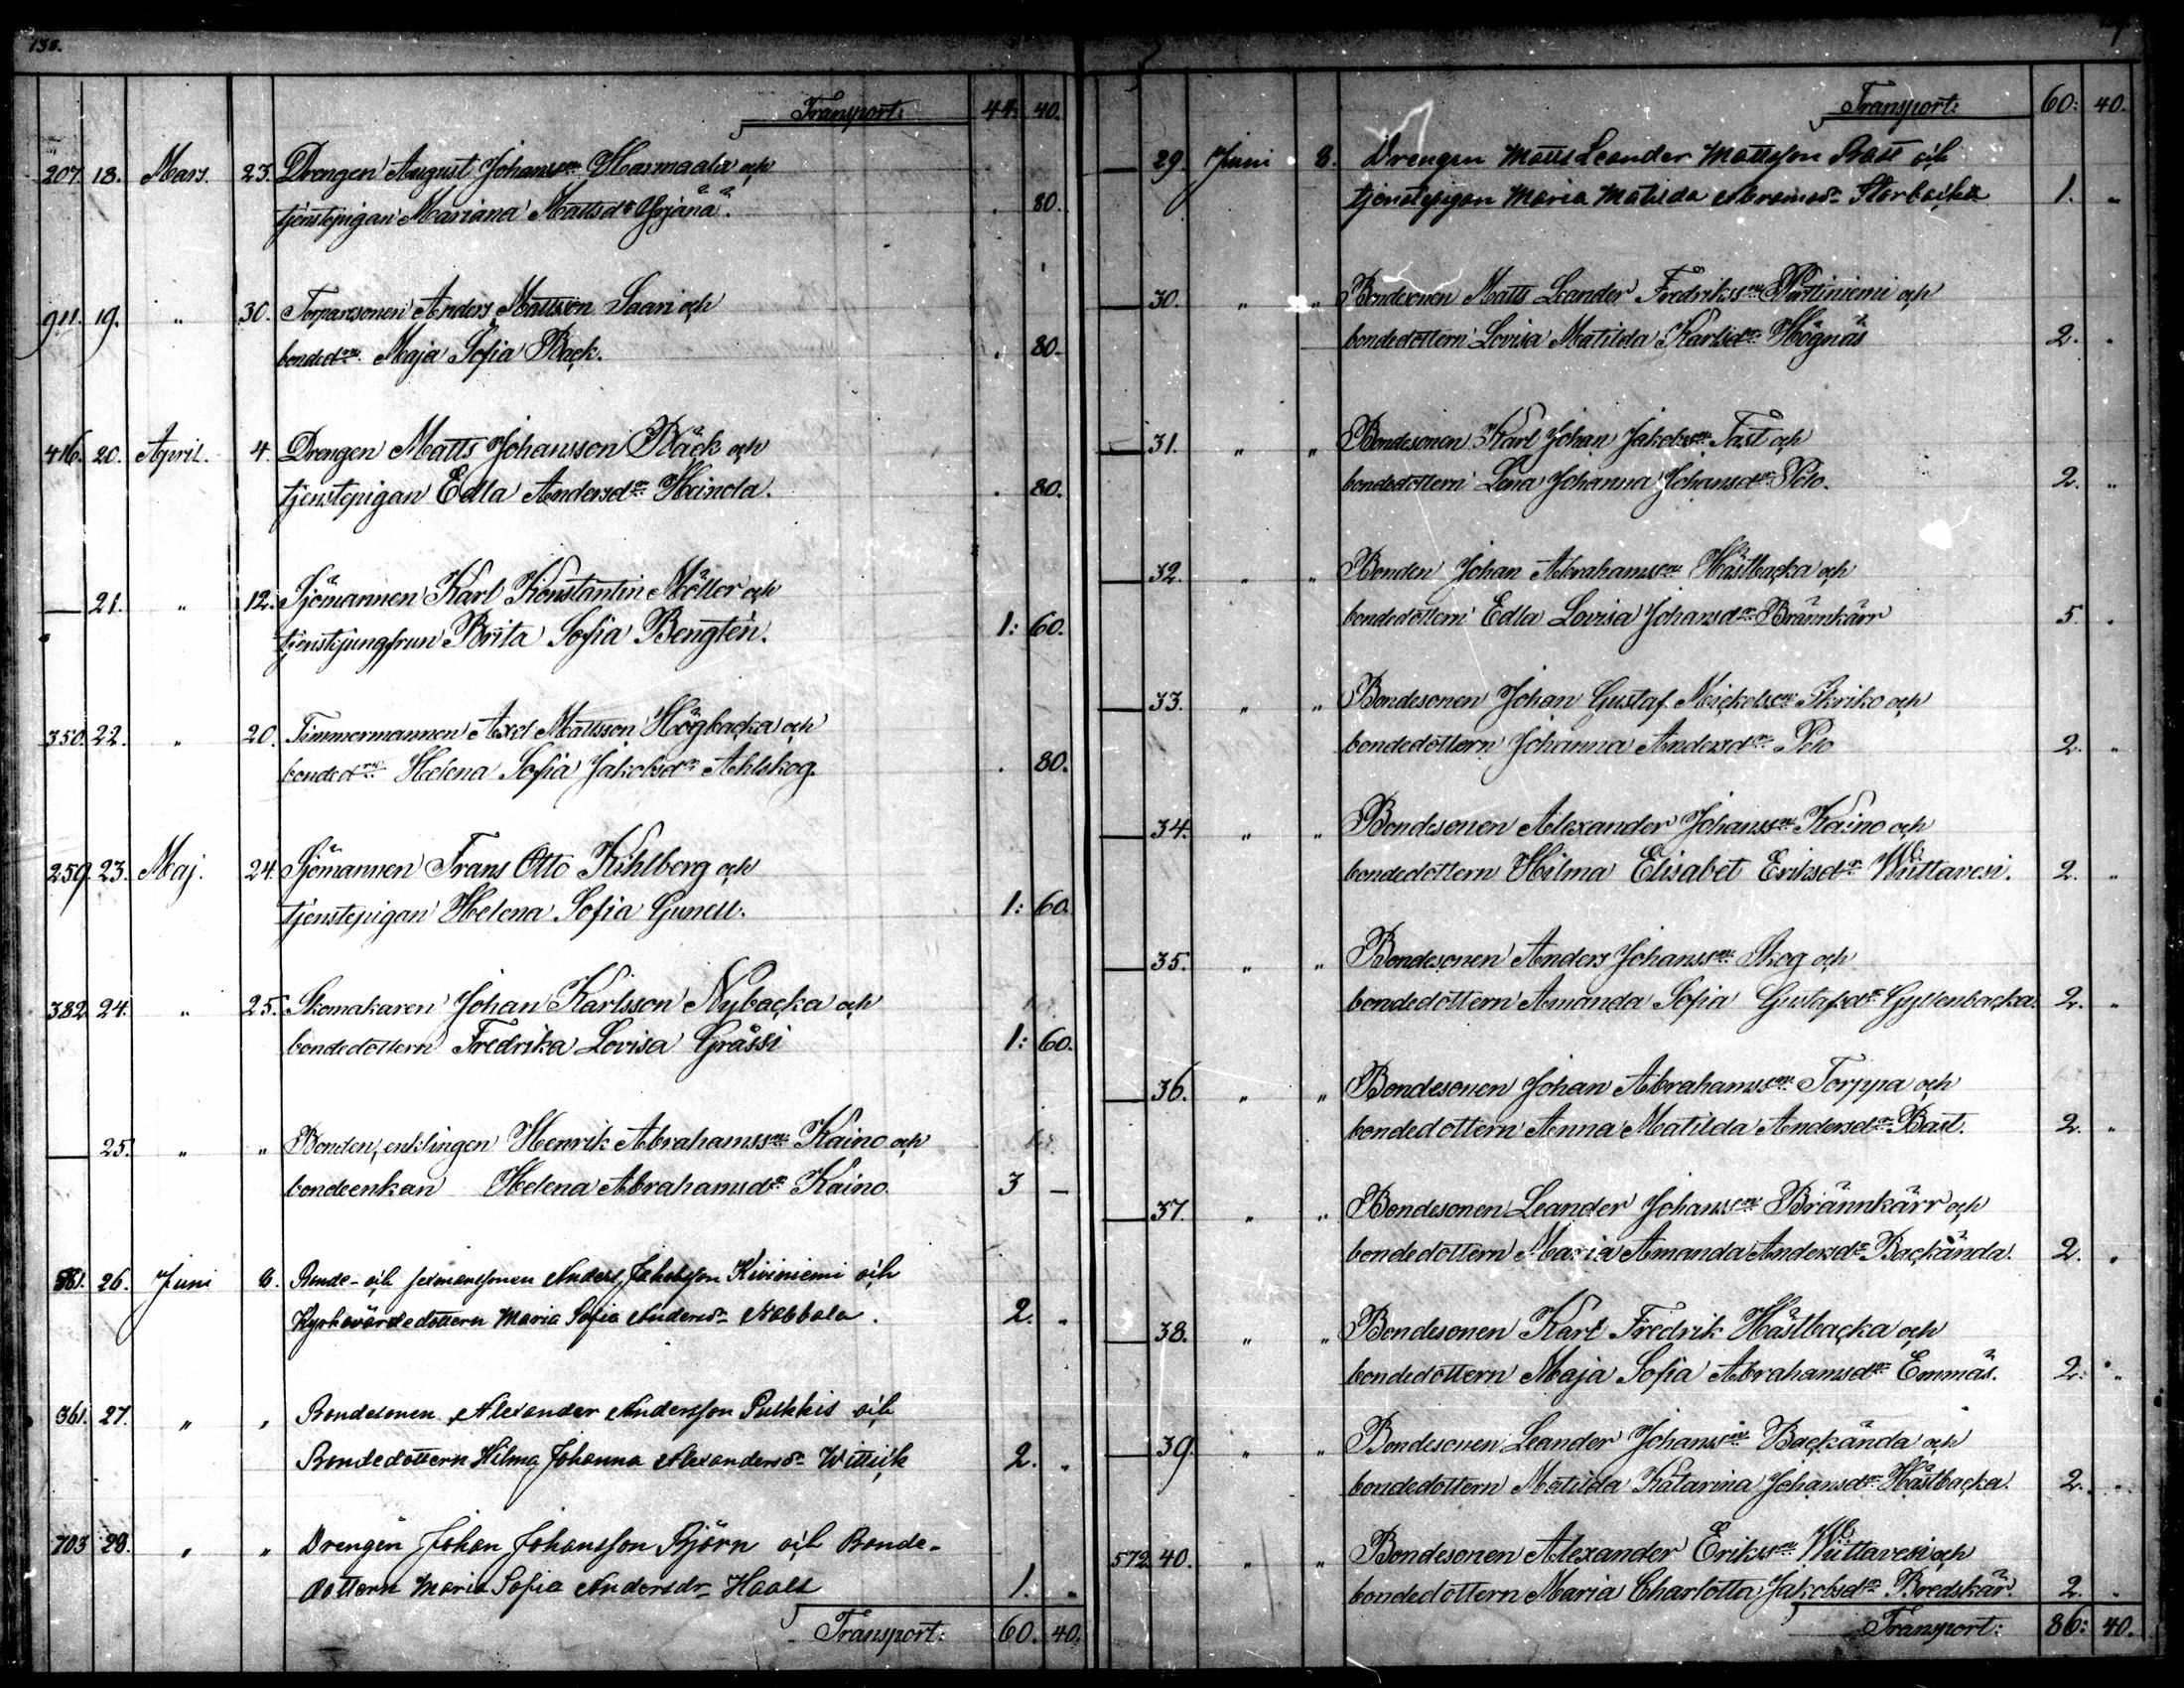 138.
Transport: 44: 40.
207. 18. Mars. 23. Drengen August Johansson Harmaala och
tjenstepigan Mariana Mattsdr . 80.
911. 19. " 30. Torparesonen Anders Mattsson Saari och
bondedrn Maja Sofia Back. . 80.
416. 20. April. 4. Drengen Matts Johansson Bäck och
tjenstepigan Edla Andersdr Heinola. . 80.
21. " 12. Sjömannen Karl Konstantin Möller och
tjenstejungfrun Brita Sofia Bengtén. 1: 60.
350. 22. " 20. Timmermannen Axel Mattsson Högbacka och
bondedrn Helena Sofia Jakobsdr Ahlskog. . 80.
259. 23. Maj. 24. Sjömannen Frans Otto Kihlberg och
tjenstepigan Helena Sofia Gunell. 1: 60.
382. 24. " 25. Skomakaren Johan Karlsson Nybacka och
bondedottern Fredrika Lovisa Grässi 1: 60.
25. " " Bonden, enklingen Henrik Abrahamsson Kaino och
bondeenkan Helena Abrahamsdr Kaino. 3 —
581. 26. Juni 8. Bonde- och sexmanssonen Anders Jakobsson Kiviniemi och
Kyrkovärdedottern Maria Sofia Andersdr Nabbala. 2. "
361. 27. " " Bondesonen Alexander Andersson Pulkkis och
Bondedottern Hilma Johanna Alexandersdr Wittick 2. "
703 28. " " Drengen Johan Johansson Björn och Bonde-
dottern Maria Sofia Andersdr Haals 1. "
Transport: 60. 40.
Transport: 60: 40.
29. Juni 8. Drengen Matts Leander Mattsson Bast och
tjenstepigan Maria Matilda Abramsdr Storbacka 1. "
30. " " Bondesonen Matts Leander Fredriksson Perttiniemi och
bondedottern Lovisa Matilda Karlsdr Högnäs 2. "
31. " " Bondesonen Karl Johan Jakobsson Fast och
bondedottern Lena Johanna Johansdr Pelo. 2. "
32. " " Bonden Johan Abrahamsson Hästbacka och
bondedottern Edla Lovisa Johansdr Brännkärr 5. "
33. " " Bondesonen Johan Gustaf Mickelsson Skriko och
bondedottern Johanna Andersdr Pelo 2. "
34. " " Bondesonen Alexander Johansson Kaino och
bondedottern Hilma Elisabet Eriksdr Wiittavesi. 2. "
35. " " Bondesonen Anders Johansson Skog och
bondedottern Amanda Sofia Gustafsdr Gyllenbacka. 2. "
36. " " Bondesonen Johan Abrahamsson Torppa och
bondedottern Anna Matilda Andersdr Bast. 2. "
37. " " Bondesonen Leander Johansson Brännkärr och
bondedottern Maria Amanda Andersdr Backända. 2. "
38. " " Bondesonen Karl Fredrik Hästbacka och
bondedottern Maja Sofia Abrahamsdr Emmäs. 2. "
39. " " Bondesonen Leander Johansson Backända och
bondedottern Matilda Katarina Johansdr Hästbacka. 2. "
572. 40. " " Bondesonen Alexander Eriksson Wiittavesi och
bondedottern Maria Charlotta Jakobsdr Bredskär. 2. "
Transport: 86: 40.